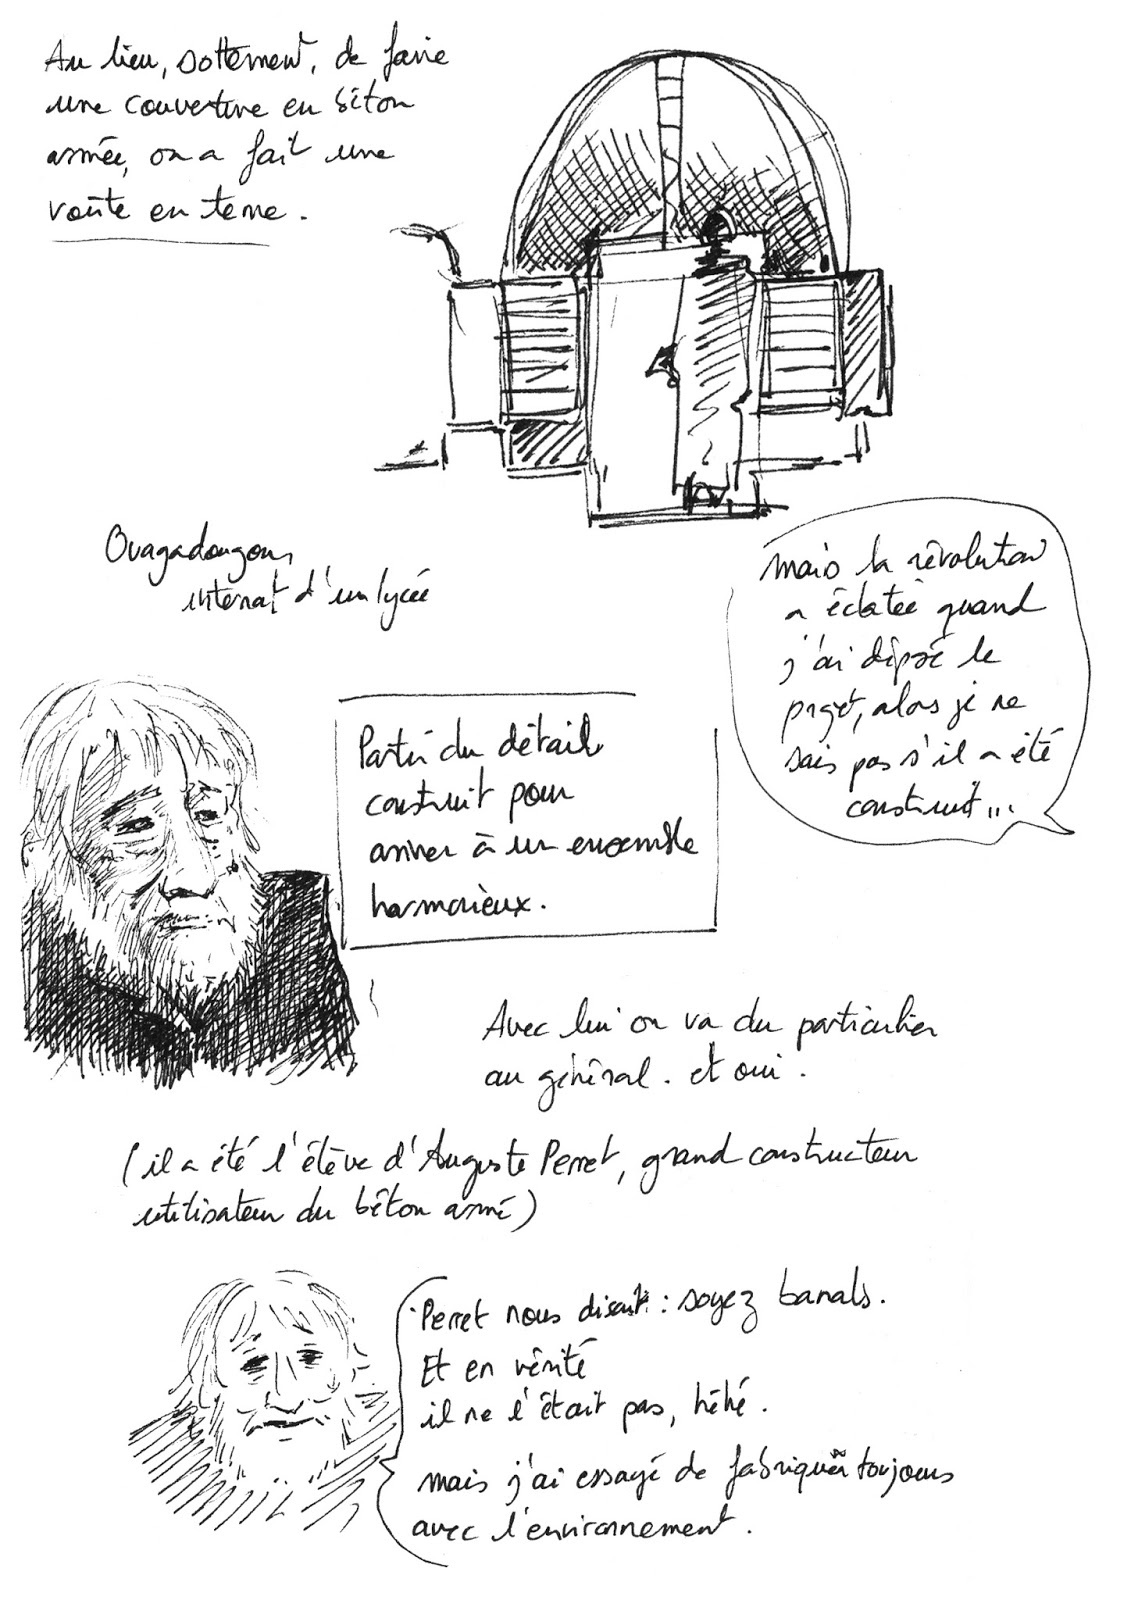 Au lieu, sottement, de faire
une couverture en béton
armée, on a fait une
voûte en terre.
Ouagadougou,
internat d'un lycée
mais la révolution
a éclatée quand
j'ai déposé le
projet, alors je ne
sais pas s'il a été
construit...
Partir du détail
construit pour
arriver à un ensemble
harmonieux.
Avec lui on va du particulier
au général. et oui.
(il a été l'élève d'Auguste Perret, grand constructeur
utilisateur du béton armé)
Perret nous disait : soyez banals.
Et en vérité
il ne l'était pas, héhé.
mais j'ai essayé de fabriquer toujours
avec l'environnement.